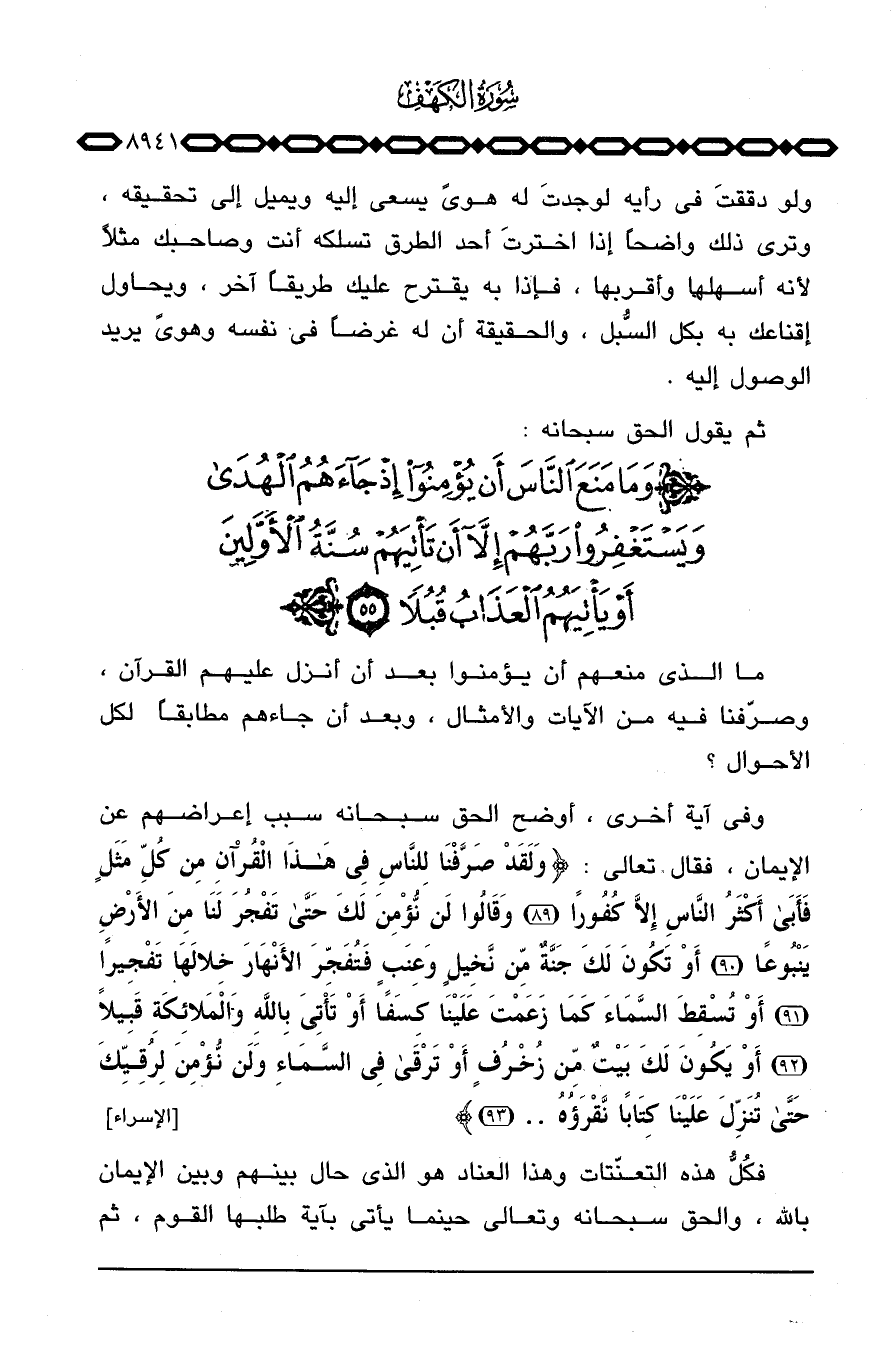 سُورَةُ الكَهْفِ
٨٩٤١
ولو دققتَ فى رأيه لوجدتَ له هوىً يسعى إليه ويميل إلى تحقيقه ،
وترى ذلك واضحاً إذا اخترتَ أحد الطرق تسلكه أنت وصاحبك مثلاً
لأنه أسهلها وأقربها ، فإذا به يقترح عليك طريقاً آخر ، ويحاول
إقناعك به بكل السُّبل ، والحقيقة أن له غرضاً فى نفسه وهوىً يريد
الوصول إليه .
ثم يقول الحق سبحانه :
وَمَا مَنَعَ ٱلنَّاسَ أَن يُؤْمِنُوٓا۟ إِذْ جَآءَهُمُ ٱلْهُدَىٰ
وَيَسْتَغْفِرُوا۟ رَبَّهُمْ إِلَّآ أَن تَأْتِيَهُمْ سُنَّةُ ٱلْأَوَّلِينَ
أَوْ يَأْتِيَهُمُ ٱلْعَذَابُ قُبُلًا ٥٥
ما الذى منعهم أن يؤمنوا بعد أن أنزل عليهم القرآن ،
وصرّفنا فيه من الآيات والأمثال ، وبعد أن جاءهم مطابقاً لكل
الأحوال ؟
وفى آية أخرى ، أوضح الحق سبحانه سبب إعراضهم عن
الإيمان ، فقال تعالى : ﴿ وَلَقَدْ صَرَّفْنَا لِلنَّاسِ فِى هَـٰذَا الْقُرْآنِ مِن كُلِّ مَثَلٍ
فَأَبَىٰ أَكْثَرُ النَّاسِ إِلاَّ كُفُورًا (٨٩) وَقَالُوا لَن نُّؤْمِنَ لَكَ حَتَّىٰ تَفْجُرَ لَنَا مِنَ الأَرْضِ
يَنْبُوعًا (٩٠) أَوْ تَكُونَ لَكَ جَنَّةٌ مِّن نَّخِيلٍ وَعِنَبٍ فَتُفَجِّرَ الأَنْهَارَ خِلالَهَا تَفْجِيرًا
(٩١) أَوْ تُسْقِطَ السَّمَاءَ كَمَا زَعَمْتَ عَلَيْنَا كِسَفًا أَوْ تَأْتِىَ بِاللَّهِ وَالْمَلائِكَةِ قَبِيلاً
(٩٢) أَوْ يَكُونَ لَكَ بَيْتٌ مِّن زُخْرُفٍ أَوْ تَرْقَىٰ فِى السَّمَاءِ وَلَن نُّؤْمِنَ لِرُقِيِّكَ
حَتَّىٰ تُنَزِّلَ عَلَيْنَا كِتَابًا نَّقْرَؤُهُ .. (٩٣) ﴾ [الإسراء]
فكُلُّ هذه التعنّتات وهذا العناد هو الذى حال بينهم وبين الإيمان
بالله ، والحق سبحانه وتعالى حينما يأتى بآية طلبها القوم ، ثم